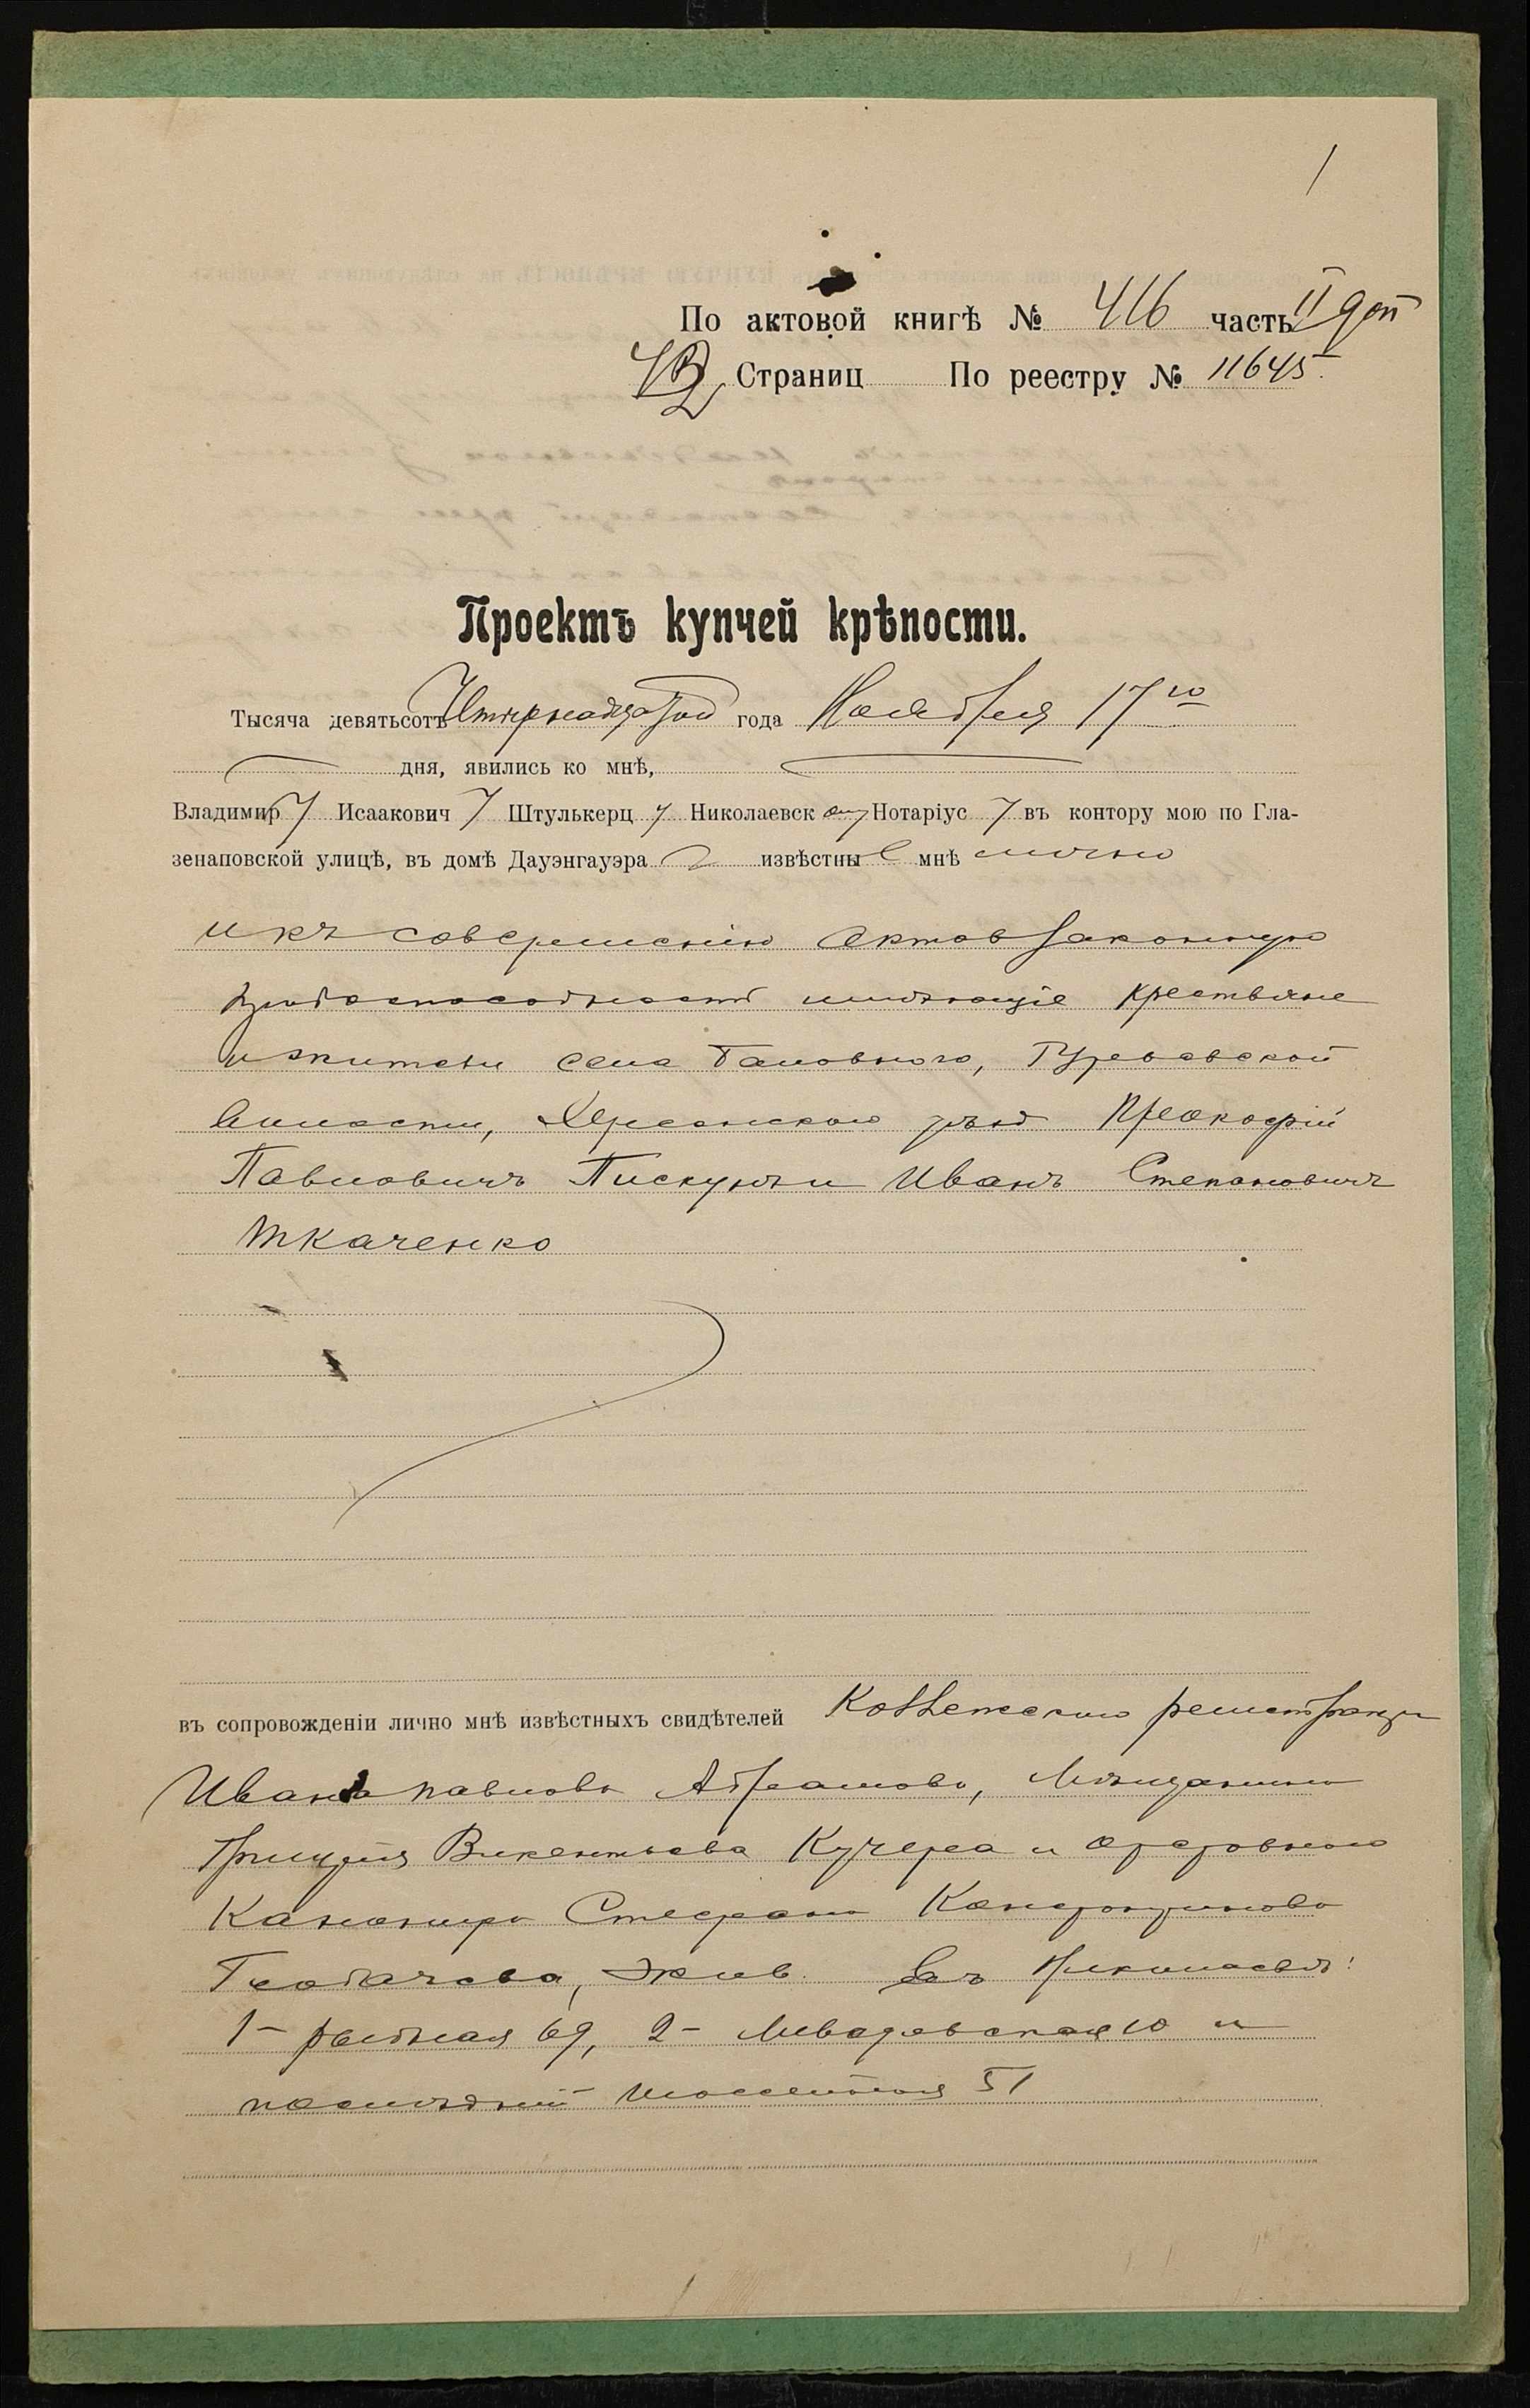 1
По актовой книгѣ № 416 часть II доп
Страниц По реестру № 11645
Проектъ купчей крѣпости.
Тысяча девятьсотъ Четырнадцатого года Ноября 17го
дня, явились ко мнѣ,
Владимир у Исаакович у Штулькерц у Николаевск ому Нотаріус у въ контору мою по Гла-
зенаповской улицѣ, въ домѣ Дауэнгауэра извѣстны е мнѣ лично
и къ совершенію актовъ законную
правоспособность имѣющіе крестьяне
и жители села Баловного, Гурьевской
волости, Херсонскаго уѣзд Прокофій
Павловичъ Пискунъ и Иванъ Степановичъ
Ткаченко
въ сопровожденіи лично мнѣ извѣстныхъ свидѣтелей Коллежскаго регистратора
Ивана Павлова Абрамова, Мѣщанина
Григорія Викентьева Кучера и
Канонира Стефана
жив. въ Николаевѣ:
1- Рыбная 69, 2- 10 и
послѣдній Шоссейная 51